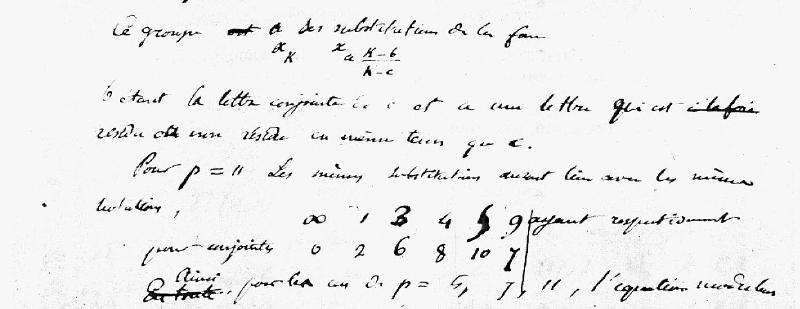 Ce groupe est a des substitutions de la forme
x_k x_{a (k-b)/(k-c)}
b étant la lettre conjointe de c et a une lettre qui est à la fois
résidu ou non résidu en même tems que c.
Pour p = 11 Les mêmes substitutions auront lieu avec les mêmes
notations,
∞ 1 3 4 5 9 ayant respectivement
pour conjointes 0 2 6 8 10 7
En toute Ainsi, pour les cas de p = 5, 7, 11, l'équation modulaire